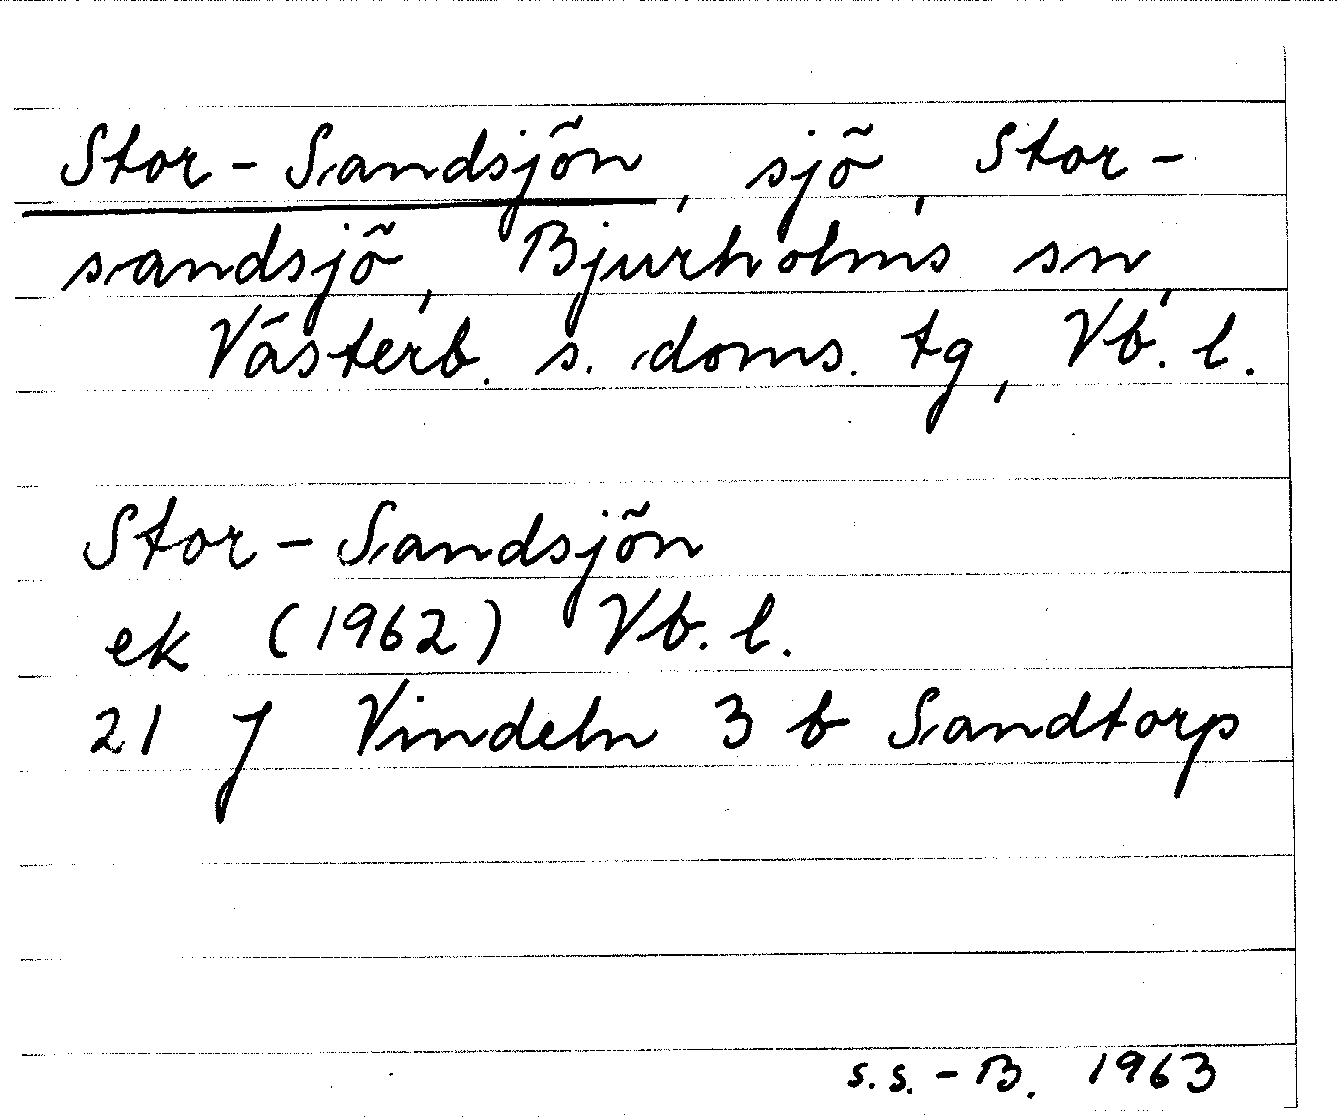 Stor-Sandsjön, sjö, Stor-
sandsjö, Bjurholms sn,
Västerb. s. doms. tg, Vb. l.
Stor-Sandsjön
ek (1962) Vb. l.
21 J Vindeln 3 b Sandtorp
S.S.-B. 1963